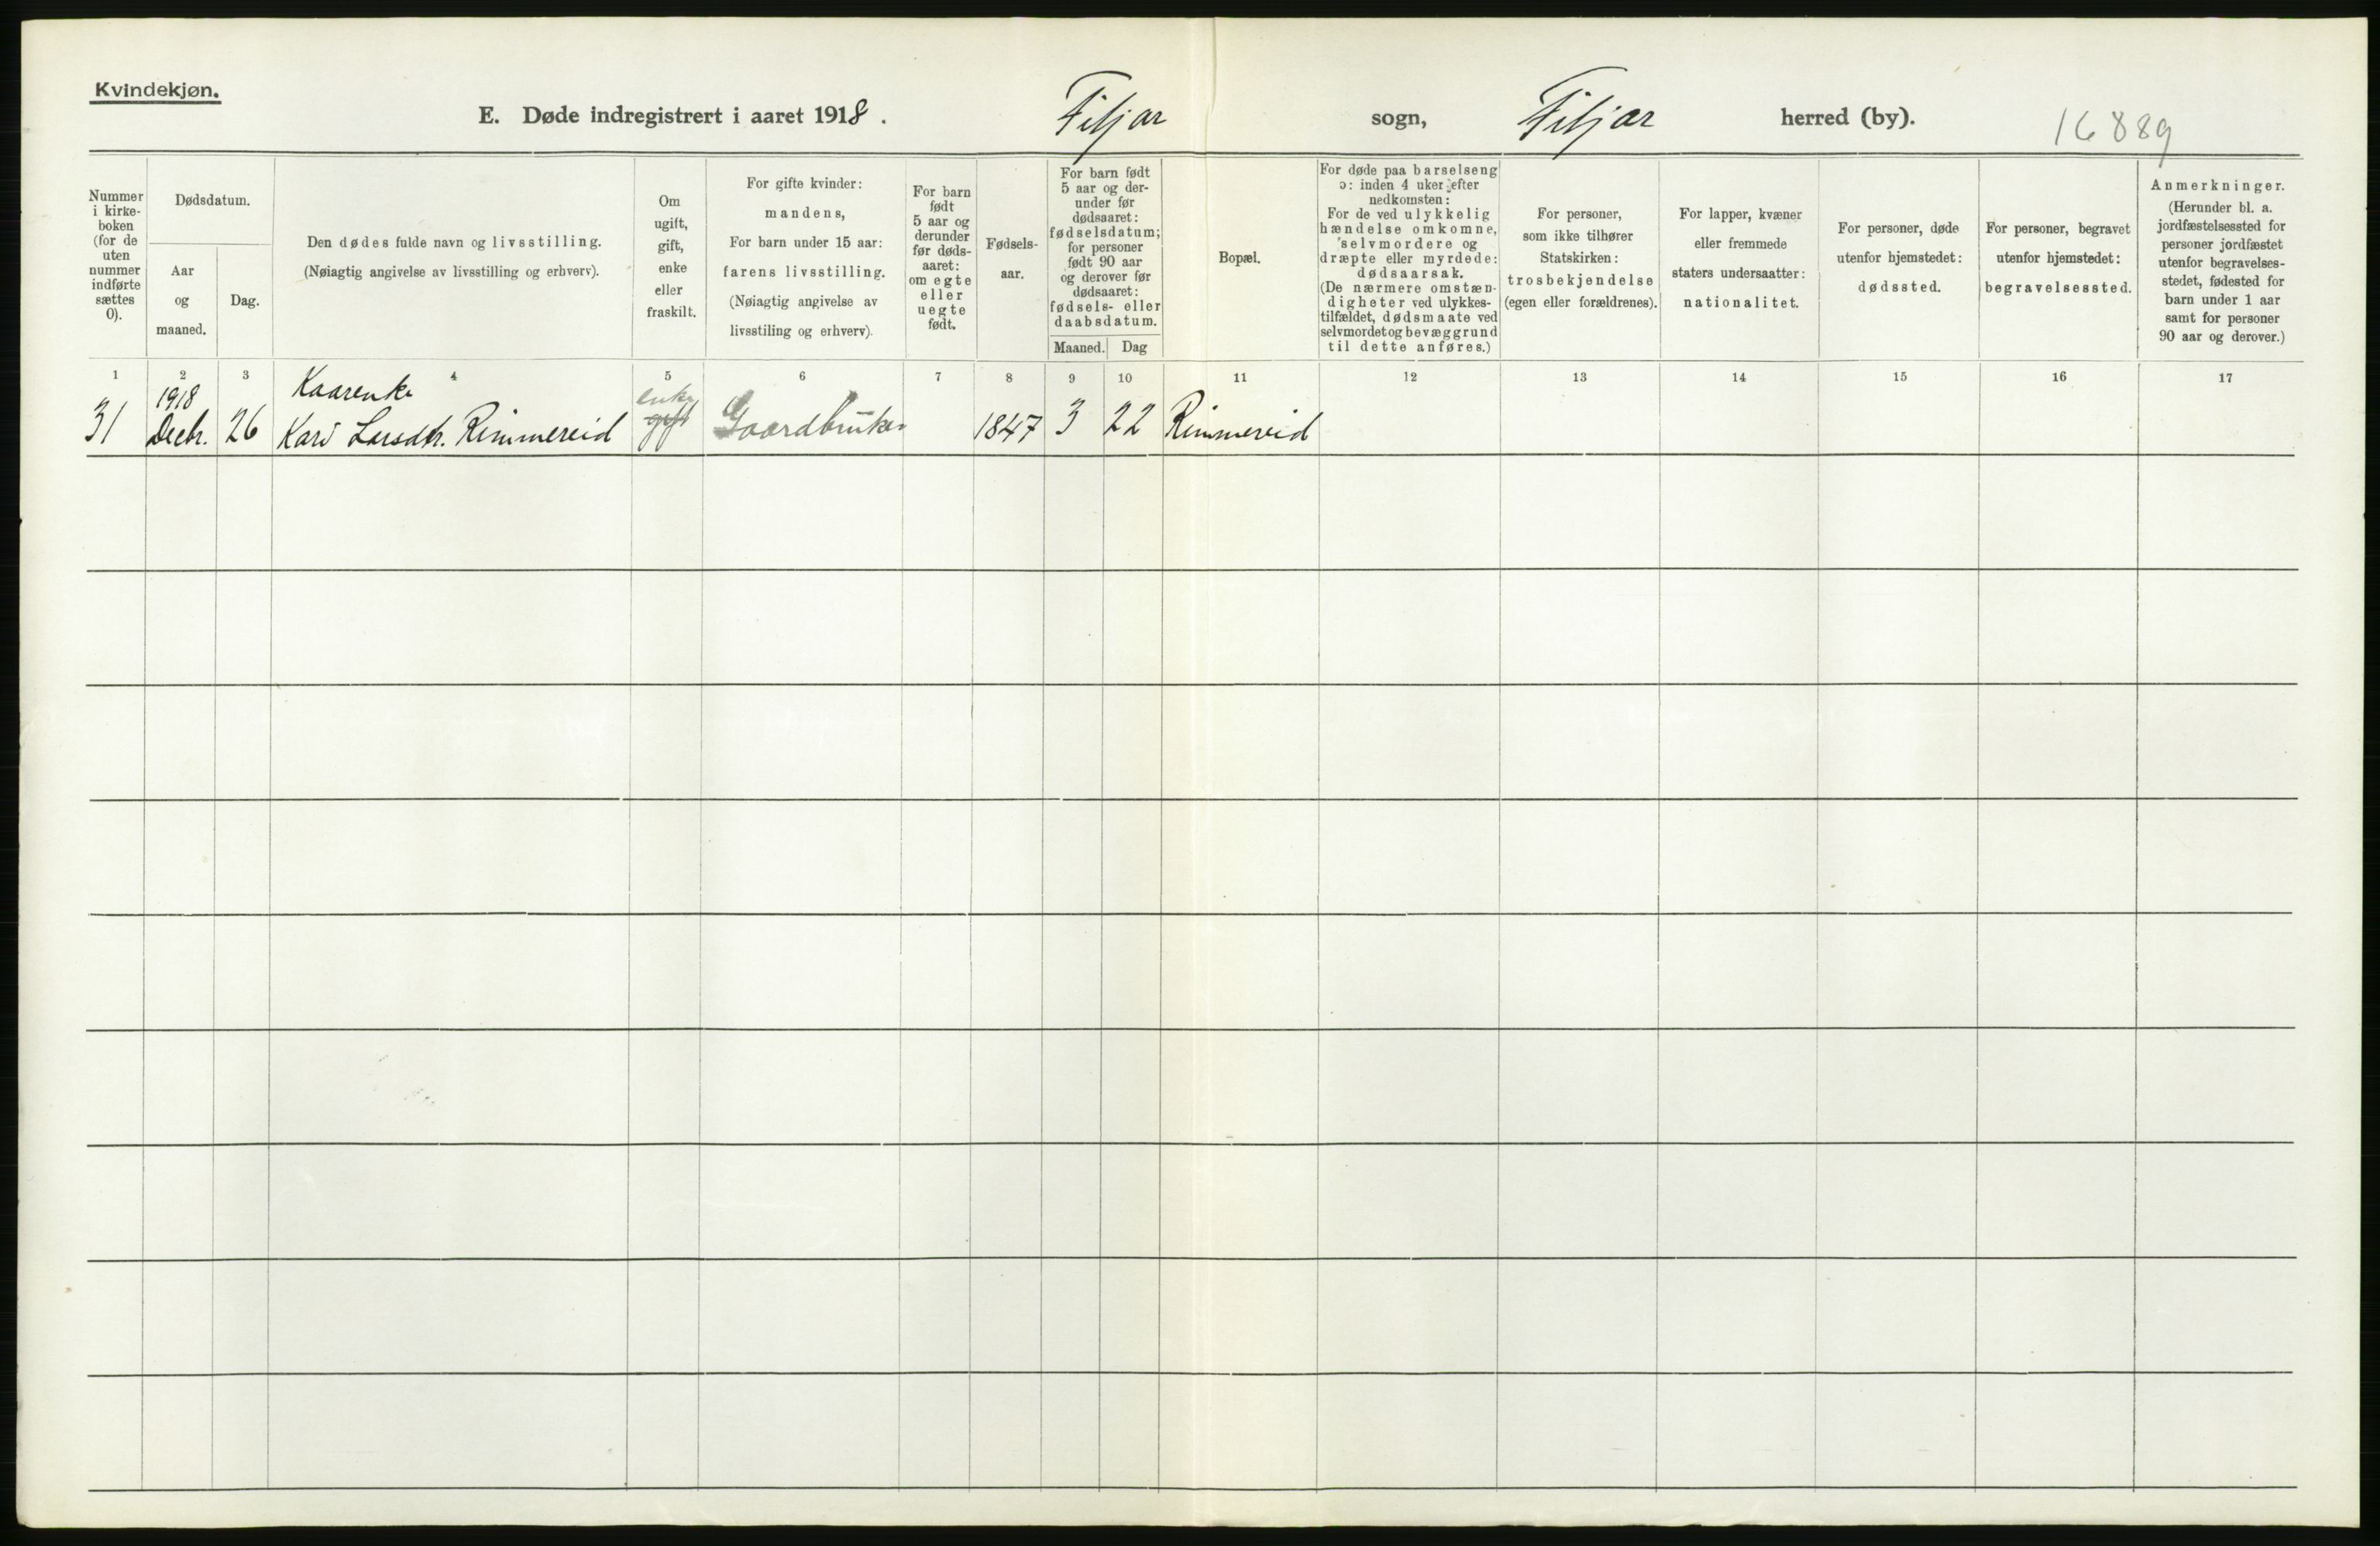 Kvindekjøn.
E. Døde indregistrert i aaret 1918.
Fitjar sogn, Fitjar herred (by).
16889
Nummer
i kirke-
boken
(for de
uten
nummer
indførte
sættes
0).
Dødsdatum.
Aar
og
maaned.
Dag.
Den dødes fulde navn og livsstilling.
(Nøiagtig angivelse av livsstilling og erhverv).
Om
ugift,
gift,
enke
eller
fraskilt.
For gifte kvinder:
mandens,
For barn under 15 aar:
farens livsstilling.
(Nøiagtig angivelse av
livsstiling og erhverv).
For barn
født
5 aar og
derunder
før døds-
aaret:
om egte
eller
uegte
født.
Fødsels-
aar.
For barn født
5 aar og der-
under før
dødsaaret:
fødselsdatum;
for personer
født 90 aar
og derover før
dødsaaret:
fødsels- eller
daabsdatum.
Maaned. Dag
Bopæl.
For døde paa barselseng
ɔ: inden 4 uker efter
nedkomsten:
For de ved ulykkelig
hændelse omkomne,
selvmordere og
dræpte eller myrdede:
dødsaarsak.
(De nærmere omstæn-
digheter ved ulykkes-
tilfældet, dødsmaate ved
selvmordet og bevæggrund
til dette anføres.)
For personer,
som ikke tilhører
Statskirken:
trosbekjendelse
(egen eller forældrenes).
For lapper, kvæner
eller fremmede
staters undersaatter:
nationalitet.
For personer, døde
utenfor hjemstedet:
dødssted.
For personer, begravet
utenfor hjemstedet:
begravelsessted.
Anmerkninger.
(Herunder bl. a.
jordfæstelsessted for
personer jordfæstet
utenfor begravelses-
stedet, fødested for
barn under 1 aar
samt for personer
90 aar og derover.)
1 2 3 4 5 6 7 8 9 10 11 12 13 14 15 16 17
1918 Kaarenke enke
31 Decbr. 26 Kari Larsdtr. Rimmereid gift Gaardbruker 1847 3 22 Rimmereid